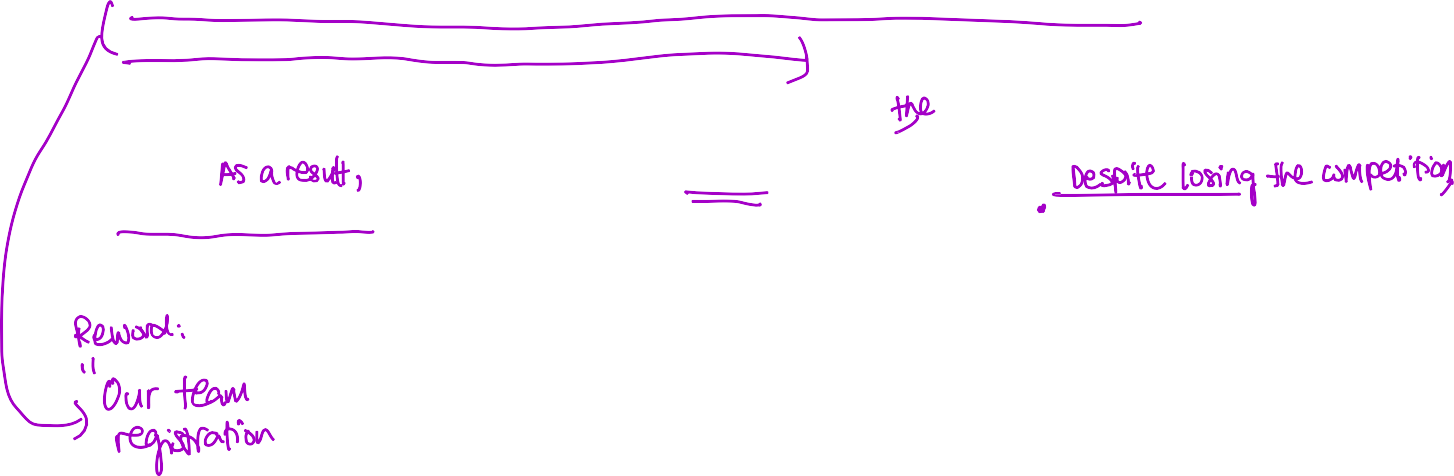 the
As a result,
Despite losing the competition,
Reword:
"Our team
registration